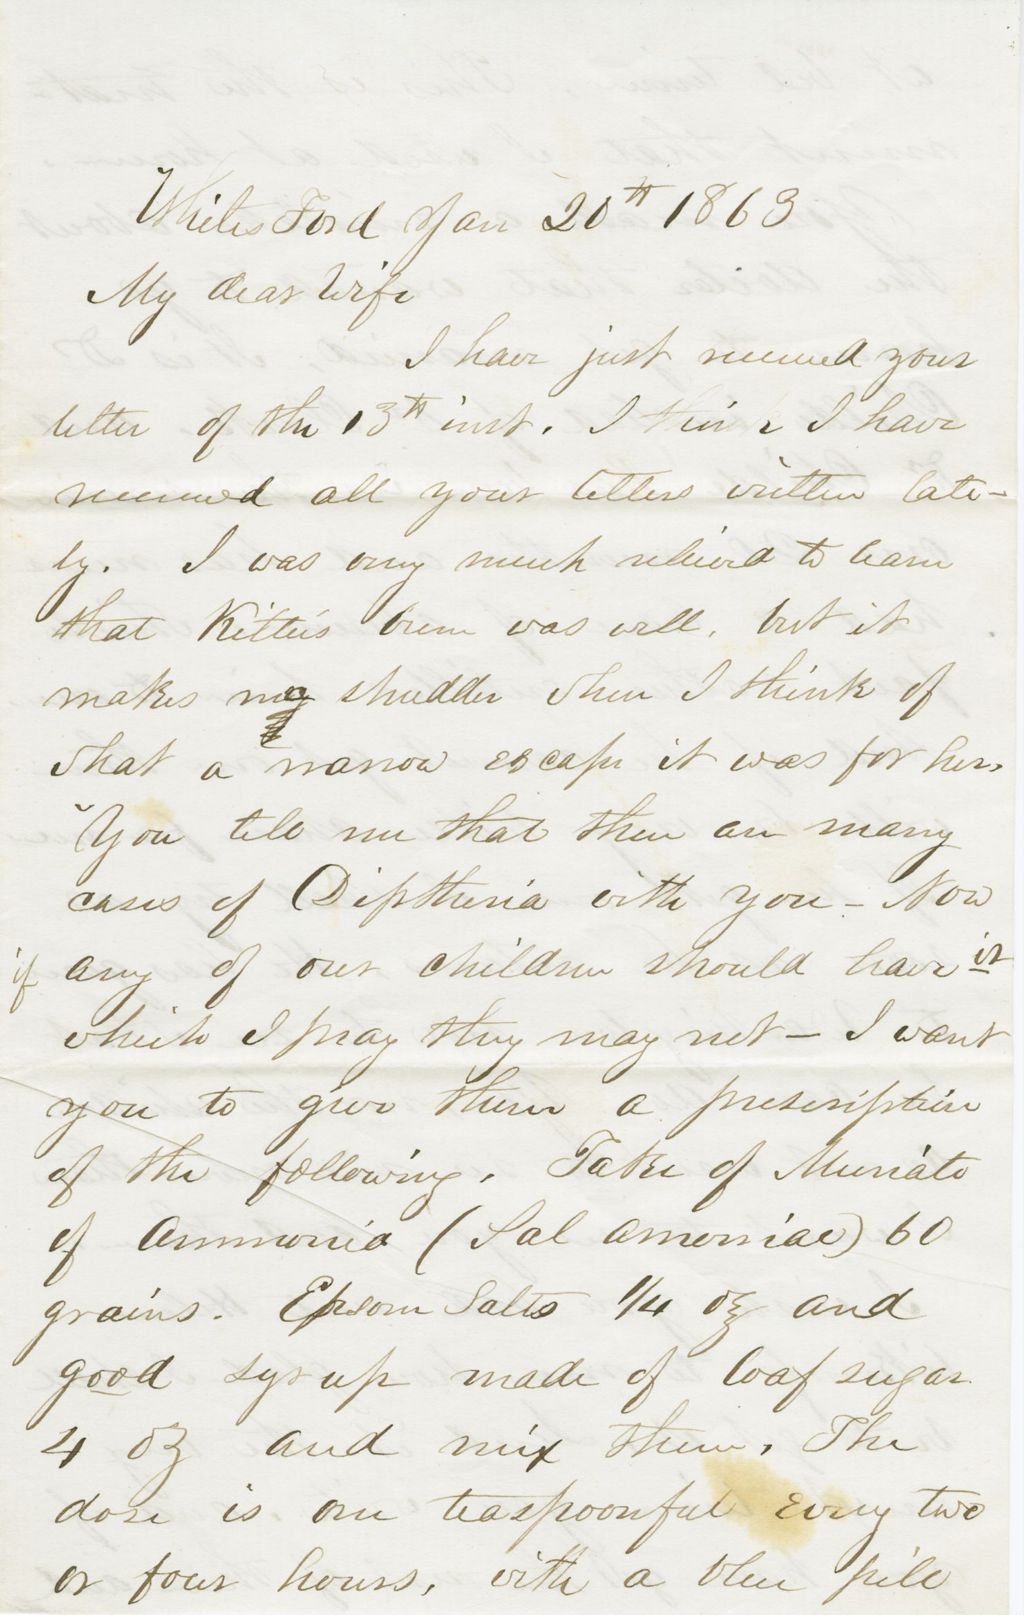 Whites Ford Jan 20th 1863
My dear Wife
I have just received your
letter of the 13th inst. I think I have
received all your letters written late-
ly. I was very much relieved to learn
that Kittie's burn was well, but it
makes me shudder when I think of
what a narrow escape it was for her.
You tell me that there are many
cases of Diptheria with you - Now
if any of our children should have it
which I pray they may not - I want
you to give them a prescription
of the following. Take of Muriate
of Ammonia (Sal amoniac) 60
grains. Epsom Salts 1/4 oz and
good syrup made of loaf sugar
4 oz and mix them. The
dose is one teaspoonful every two
or four hours, with a blue pill